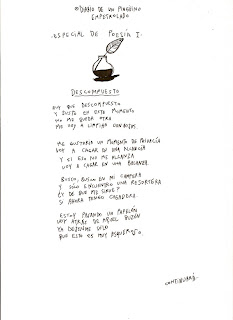 DIARIO DE UN PINGÜINO
EMPETROLADO
ESPECIAL DE POESÍA I.
DESCOMPUESTO
ESTOY DESCOMPUESTO
Y JUSTO EN ESTE MOMENTO
NO ME QUEDA OTRA
ME VOY A LIMPIAR CON
ME GUSTARIA UN MOMENTO DE
VOY A CAGAR EN UNA ALCANCÍA
Y SI ESO NO ME ALCANZA
VOY A CAGAR EN UNA BALANZA.
BUSCO, BUSCO EN MI CAMPERA
Y SÓLO ENCUENTRO UNA RESORTERA
¿Y DE QUE ME SIRVE?
SI AHORA TENGO CAGADERA.
ESTOY PASANDO UN PAPELÓN
VOY ATRÁS DE AQUEL BUZÓN
YA DEJEMOS
QUE ESTO ES MUY ASQUEROSO.
CONTINUARÁ.